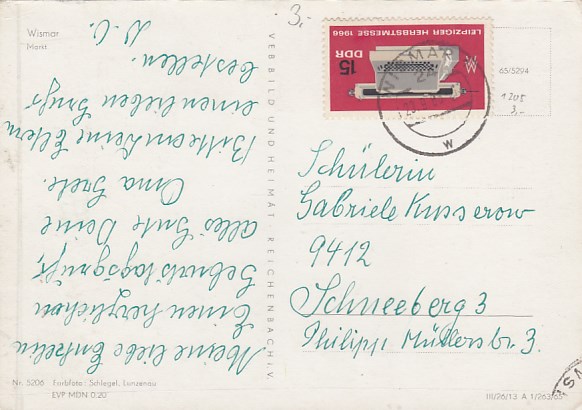 Wismar
Markt
3,-
LEIPZIGER HERBSTMESSE 1966
DDR
15
WISMAR
W
65/5294
3,-
VEB BILD UND HEIMAT REICHENBACH I. V.
Meine liebe Enkelin
Einen herzlichen
Geburtstagsgruß,
alles Gute Deine
Oma Grete.
Bitte an Deine Eltern
einen lieben Gruß
bestellen.
Schülerin
Gabriele Kusserow
9412
Schneeberg 3
Philipp Müllerstr. 3.
Nr. 5206 Farbfoto: Schlegel, Lunzenau
EVP MDN 0.20
III/26/13 A 1/263/65